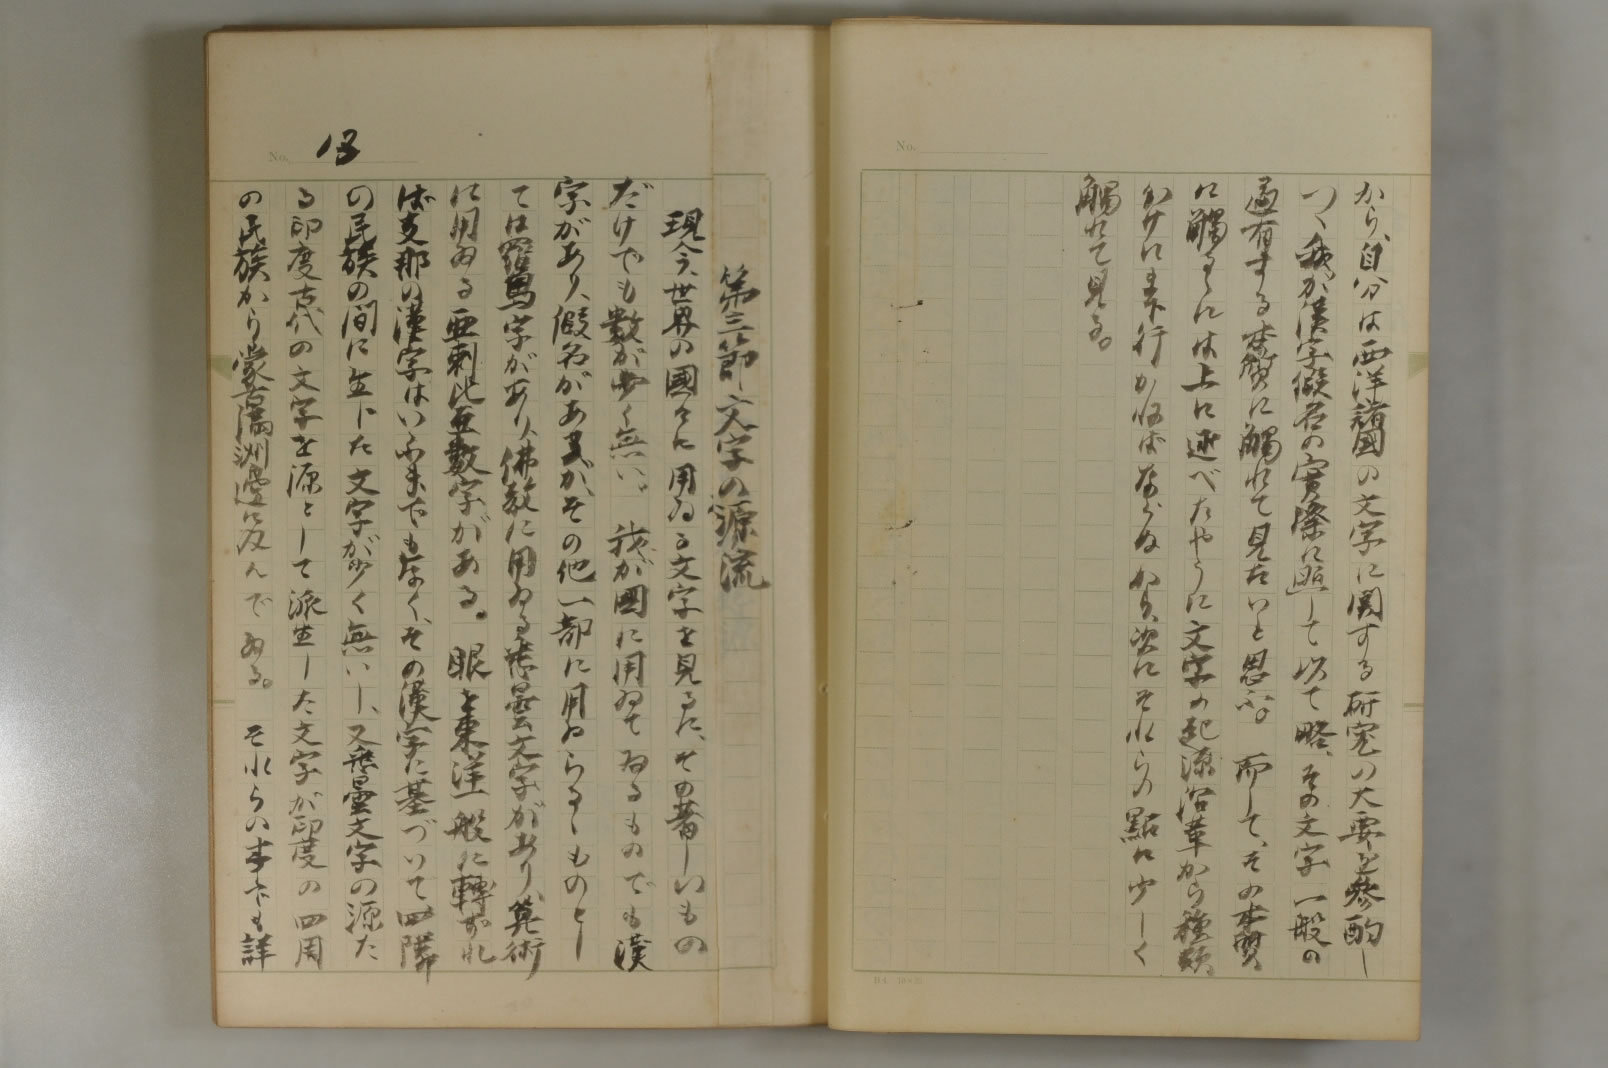 No.
から、自分は西洋諸國の文字に関する研究の大要を参酌し
つゝ我が漢字假名の實際に照して以て略、その文字一般の
通有する本質に觸れて見たいと思ふ。而して、その本質
に觸るゝには上に述べたやうに文字の起源沿革から種類
かけに行かねばならぬから、次にそれらの點に少しく
觸れて見る。
No. 13
第三節 文字の源流
現今、世界の國々に用ゐる文字を見るに、その著しいもの
だけでも數が少く無い。我が國に用ゐてゐるものでも漢
字があり、假名があるが、その他一部に用ゐらるゝものとし
ては羅馬字があり、佛教に用ゐる悉曇文字があり、算術
に用ゐる亜剌比亜數字がある。眼を東洋一般に轉ずれ
ば支那の漢字はいふまでもなく、その漢字に基づいて四隣
の民族の間に生じた文字が少く無いし、又悉曇文字の源た
る印度古代の文字を源として派生した文字が印度の四周
の民族から蒙古滿洲邊に及んでゐる。それらの事でも詳